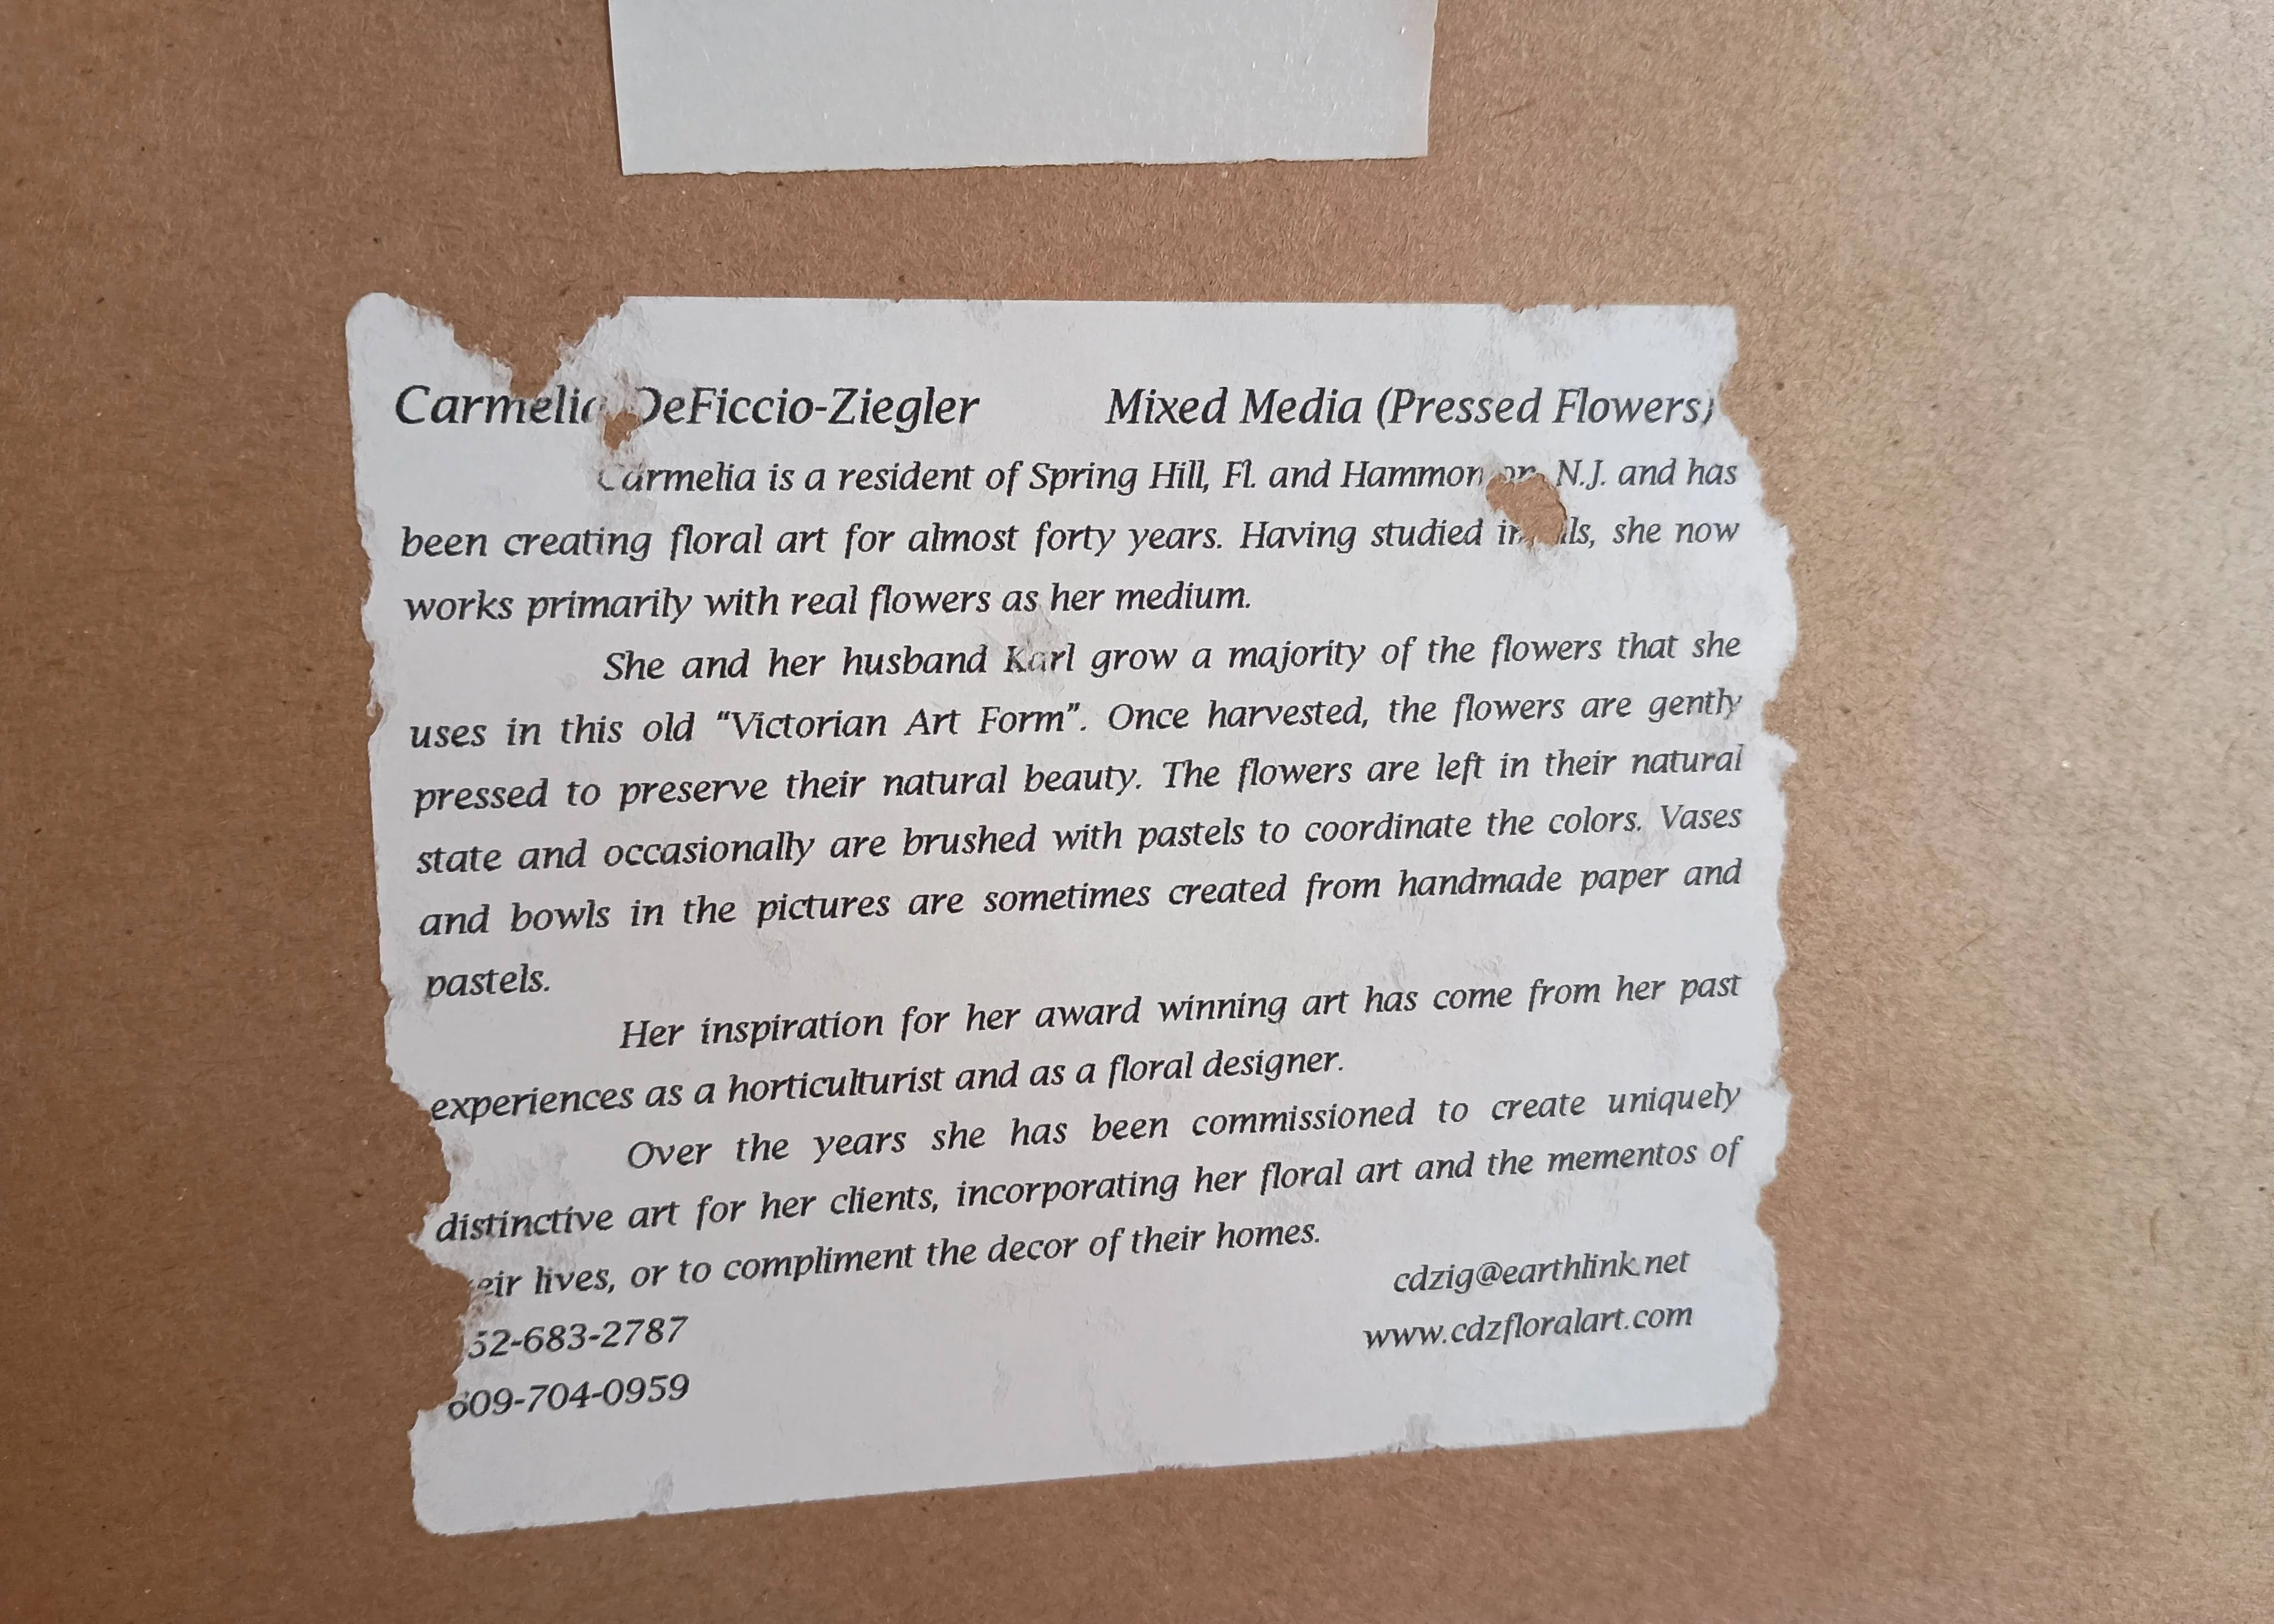 Carmelia DeFiccio-Ziegler Mixed Media (Pressed Flowers)
Carmelia is a resident of Spring Hill, Fl. and N.J. and has
been creating floral art for almost forty years. Having studied she now
works primarily with real flowers as her medium.
She and her husband Karl grow a majority of the flowers that she
uses in this old “Victorian Art Form”. Once harvested, the flowers are gently
pressed to preserve their natural beauty. The flowers are left in their natural
state and occasionally are brushed with pastels to coordinate the colors. Vases
and bowls in the pictures are sometimes created from handmade paper and
pastels.
Her inspiration for her award winning art has come from her past
experiences as a horticulturist and as a floral designer.
Over the years she has been commissioned to create uniquely
distinctive art for her clients, incorporating her floral art and the mementos of
lives, or to compliment the decor of their homes.
cdzig@earthlink.net
52-683-2787
www.cdzfloralart.com
609-704-0959